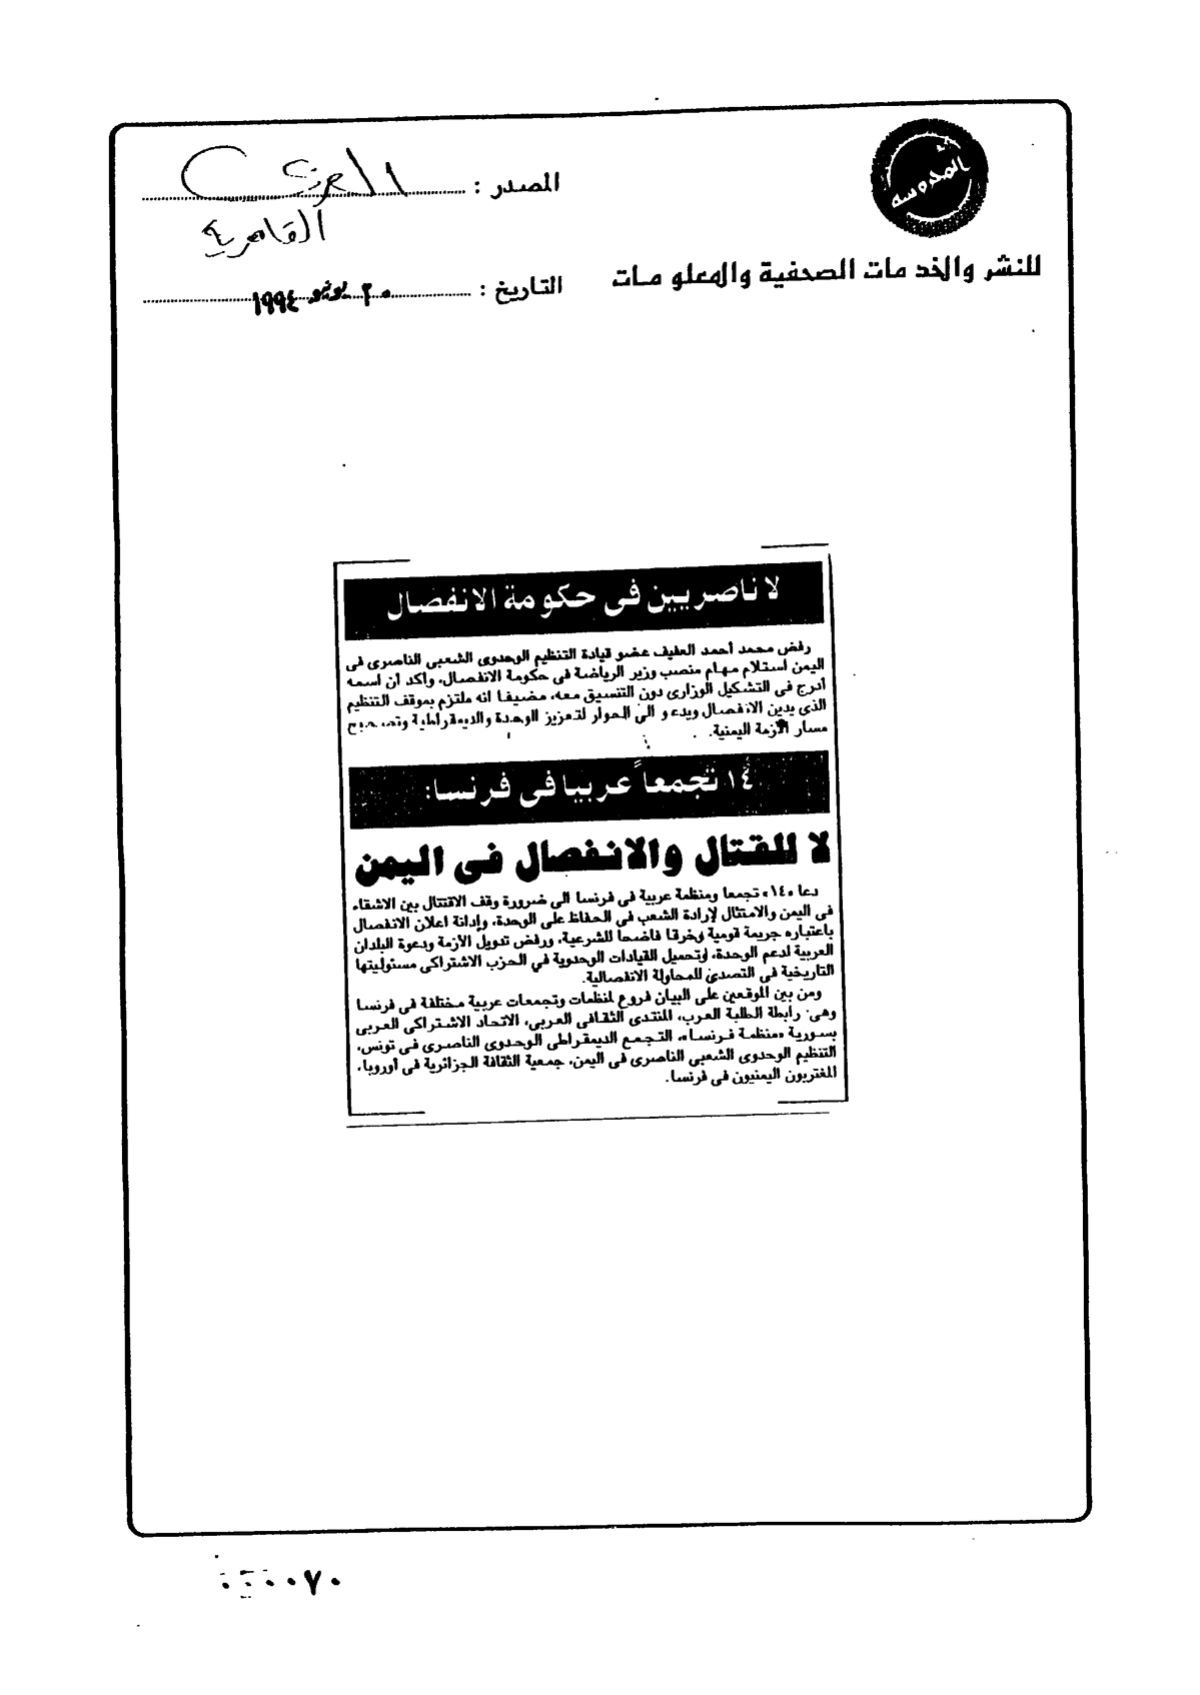 المحروسة
للنشر والخدمات الصحفية والمعلومات
المصدر : العربى
القاهرية
التاريخ : ٢٠ يونيو ١٩٩٤
لا ناصريين فى حكومة الانفصال
رفض محمد أحمد العفيف عضو قيادة التنظيم الوحدوى الشعبى الناصرى فى
اليمن استلام مهام منصب وزير الرياضة فى حكومة الانفصال، وأكد أن اسمه
أدرج فى التشكيل الوزارى دون التنسيق معه، مضيفا انه ملتزم بموقف التنظيم
الذى يدين الانفصال ويدعو الى الحوار لتعزيز الوحدة والديمقراطية وتصحيح
مسار الأزمة اليمنية.
١٤ تجمعاً عربيا فى فرنسا:
لا للقتال والانفصال فى اليمن
دعا «١٤» تجمعا ومنظمة عربية فى فرنسا الى ضرورة وقف الاقتتال بين الاشقاء
فى اليمن والامتثال لإرادة الشعب فى الحفاظ على الوحدة، وإدانة اعلان الانفصال
باعتباره جريمة قومية وخرقا فاضحا للشرعية، ورفض تدويل الأزمة ودعوة البلدان
العربية لدعم الوحدة، وتحميل القيادات الوحدوية في الحزب الاشتراكى مسئوليتها
التاريخية فى التصدى للمحاولة الانفصالية.
ومن بين الموقعين على البيان فروع لمنظمات وتجمعات عربية مختلفة فى فرنسا
وهى: رابطة الطلبة العرب، المنتدى الثقافى العربى، الاتحاد الاشتراكى العربى
بسورية «منظمة فرنسا»، التجمع الديمقراطى الوحدوى الناصرى فى تونس،
التنظيم الوحدوى الشعبى الناصرى فى اليمن، جمعية الثقافة الجزائرية فى أوروبا،
المغتربون اليمنيون فى فرنسا.